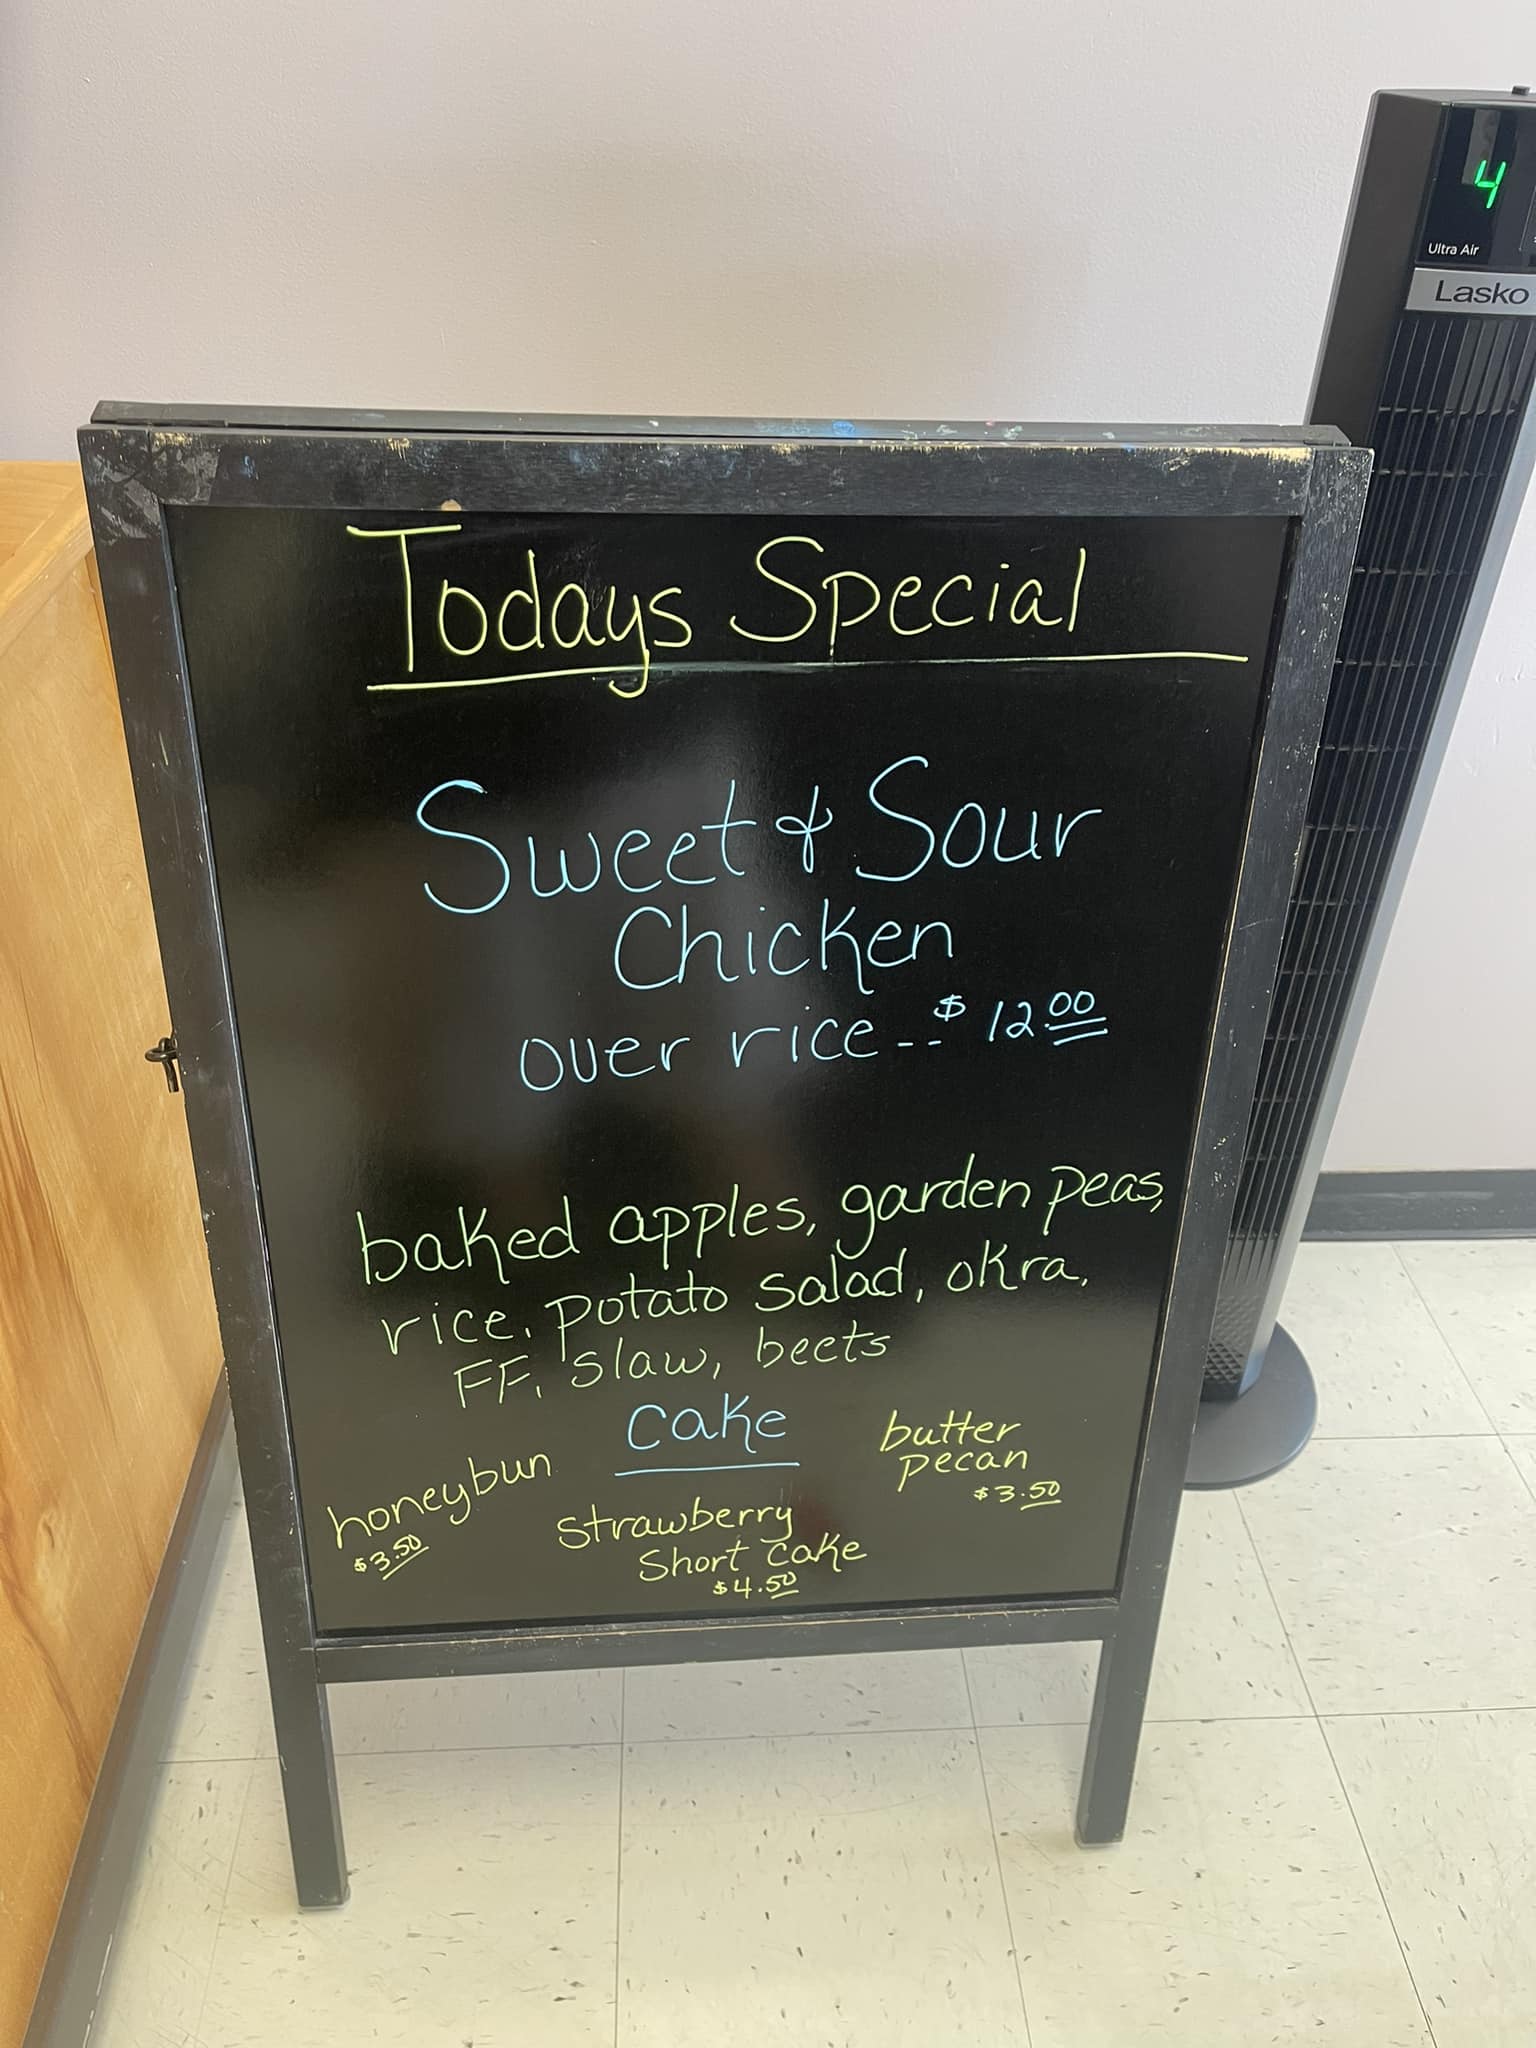 Todays Special
Sweet & Sour
Chicken
over rice..$ 12.00
baked apples, garden peas,
rice, potato salad, okra,
FF, slaw, beets
cake
honeybun
$3.50
strawberry
short cake
$4.50
butter
pecan
$3.50
4
Ultra Air
Lasko